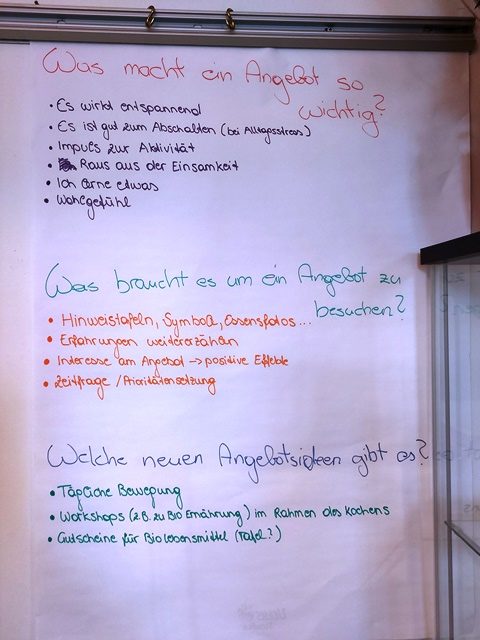 Was macht ein Angebot so
wichtig?
• Es wirkt entspannend
• Es ist gut zum Abschalten (bei Alltagsstress)
• Impuls zur Aktivität
• Raus aus der Einsamkeit
• Ich lerne etwas
• Wohlgefühl
Was braucht es um ein Angebot zu
besuchen?
• Hinweistafeln, Symbole, Essensfotos...
• Erfahrungen weitererzählen
• Interesse am Angebot → positive Effekte
• Zeitfrage / Prioritätensetzung
Welche neuen Angebotsideen gibt es?
• Tägliche Bewegung
• Workshops (z.B. zu Bio Ernährung) im Rahmen des Kochens
• Gutscheine für Biolebensmittel (Tafel?)